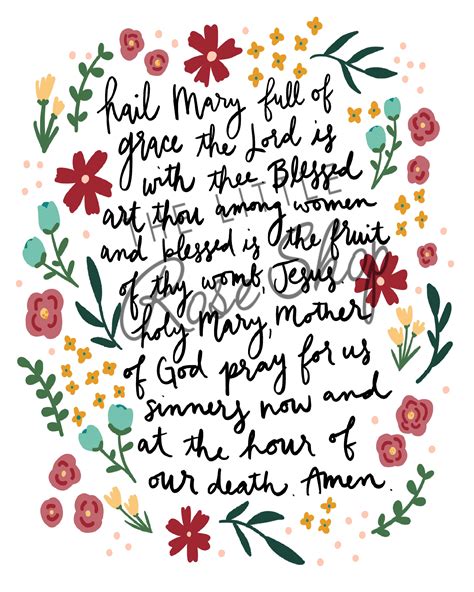 hail Mary full of
grace the Lord is
with thee. Blessed
art thou among women
and blessed is the fruit
of thy womb, Jesus.
holy Mary, Mother
of God pray for us
sinners now and
at the hour of
our death. Amen.
THE LITTLE
Rose Shop